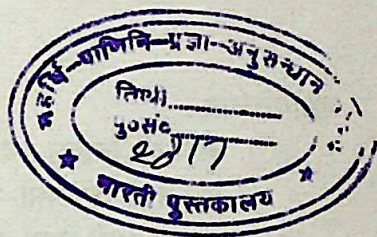 महर्षि-पाणिनि-प्रज्ञा-अनुसन्धान
तिथि..............
पु०सं०..............
2017
★ भारती पुस्तकालय ★